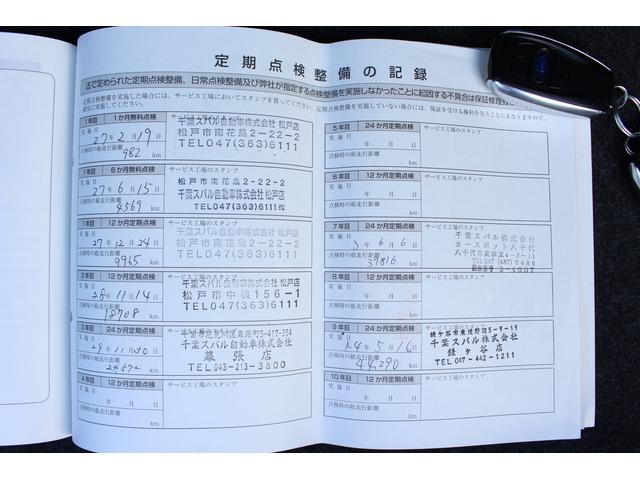 定期点検整備の記録
法で定められた定期点検整備、日常点検整備及び弊社が指定する点検整備を実施しなかったことに起因する不具合は保証修理
定期点検整備を実施した場合には、サービス工場においてスタンプを貰ってください。
定期点検整備を実施していない場合には、保証を受ける権利を失うことにもなりますので、
確実に実施してください。
1年目 1か月無料点検 サービス工場のスタンプ
実施日
27年2月19日
点検時の総走行距離
982 km
千葉スバル自動車株式会社 松戸店
松戸市南花島2-22-2
TEL047(363)6111
1年目 6か月無料点検 サービス工場のスタンプ
実施日
27年6月15日
点検時の総走行距離
4569 km
松戸市南花島2-22-2
千葉スバル自動車株式会社松戸店
TEL047(363)6111㈹
1年目 12か月定期点検 サービス工場のスタンプ
実施日
27年12月24日
点検時の総走行距離
9965 km
千葉スバル自動車株式会社 松戸店
松戸市南花島2-22-2
TEL047(363)6111
2年目 12か月定期点検 サービス工場のスタンプ
実施日
28年11月14日
点検時の総走行距離
18708 km
千葉スバル自動車株式会社 松戸店
松戸市中根156-1
TEL047(363)6111
3年目 24か月定期点検 サービス工場のスタンプ
実施日
29年11月30日
点検時の総走行距離
24572 km
千葉市花見川区幕張町5-417-354
千葉スバル自動車株式会社
幕張店
TEL 043-213-3800
4年目 12か月定期点検 サービス工場のスタンプ
実施日
年 月 日
点検時の総走行距離
km
5年目 24か月定期点検 サービス工場のスタンプ
実施日
年 月 日
点検時の総走行距離
km
6年目 12か月定期点検 サービス工場のスタンプ
実施日
年 月 日
点検時の総走行距離
km
7年目 24か月定期点検 サービス工場のスタンプ
実施日
3年6月6日
点検時の総走行距離
39816 km
千葉スバル株式会社
カースポット八千代
TEL 047(487)0486
8年目 12か月定期点検 サービス工場のスタンプ
実施日
年 月 日
点検時の総走行距離
km
9年目 24か月定期点検 サービス工場のスタンプ
実施日
R4年5月16日
点検時の総走行距離
44290 km
鎌ケ谷市東道野辺5-9-19
千葉スバル株式会社
鎌ヶ谷店
TEL 047-442-1211
10年目 12か月定期点検 サービス工場のスタンプ
実施日
年 月 日
点検時の総走行距離
km